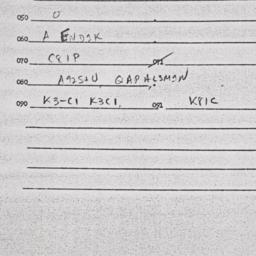 050 O
060 A ENDSK
070 C81P 071
080 A92S+U QAPAL3M9N
090 K3-C1 K3C1, 091 K81C